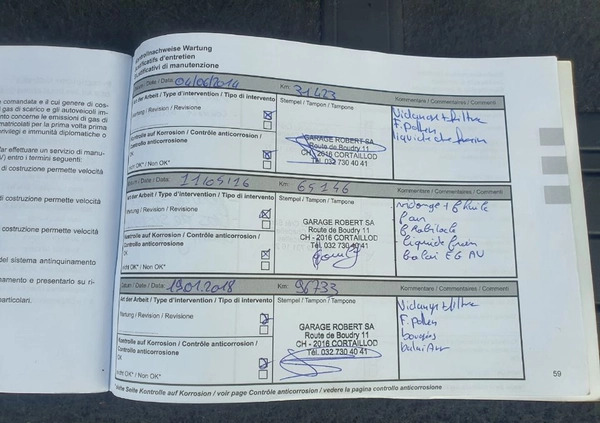 comandata e il cui genere di cos-
gas di scarico e gli autoveicoli im-
nto concerne le emissioni di gas di
matricolati per la prima volta prima
privilegi e immunità diplomatiche o
far effettuare un servizio di manu-
V) entro i termini seguenti:
di costruzione permette velocità
di costruzione permette velocità
costruzione permette velocità
del sistema antinquinamento
namento e presentarlo su ri-
particolari.
Kontrollnachweise Wartung
Justificatifs d'entretien
Giustificativi di manutenzione
Datum / Date / Data: 04/06/2014 Km: 31423
Art der Arbeit / Type d'intervention / Tipo di intervento
Stempel / Tampon / Tampone
Kommentare / Commentaires / Commenti
Wartung / Revision / Revisione
Kontrolle auf Korrosion / Contrôle anticorrosion /
controllo anticorrosione
OK
Nicht OK* / Non OK*
GARAGE ROBERT SA
Route de Boudry 11
CH - 2016 CORTAILLOD
Tél. 032 730 40 41
Vidange + filtre
F. Pollen
liquide de frein
Datum / Date / Data: 11/05/16 Km: 65146
Art der Arbeit / Type d'intervention / Tipo di intervento
Stempel / Tampon / Tampone
Kommentare / Commentaires / Commenti
Wartung / Revision / Revisione
Kontrolle auf Korrosion / Contrôle anticorrosion /
controllo anticorrosione
OK
Nicht OK* / Non OK*
GARAGE ROBERT SA
Route de Boudry 11
CH - 2016 CORTAILLOD
Tél. 032 730 40 41
vidange + f huile
f air
f habitacle
liquide frein
balai EG AV
Datum / Date / Data: 19.01.2018 Km: 96733
Art der Arbeit / Type d'intervention / Tipo di intervento
Stempel / Tampon / Tampone
Kommentare / Commentaires / Commenti
Wartung / Revision / Revisione
Kontrolle auf Korrosion / Contrôle anticorrosion /
controllo anticorrosione
OK
Nicht OK* / Non OK*
GARAGE ROBERT SA
Route de Boudry 11
CH - 2016 CORTAILLOD
Tél. 032 730 40 41
Vidange + filtre
F. Pollen
bougies
balai Av
*siehe Seite Kontrolle auf Korrosion / voir page Contrôle anticorrosion / vedere la pagina controllo anticorrosione
59